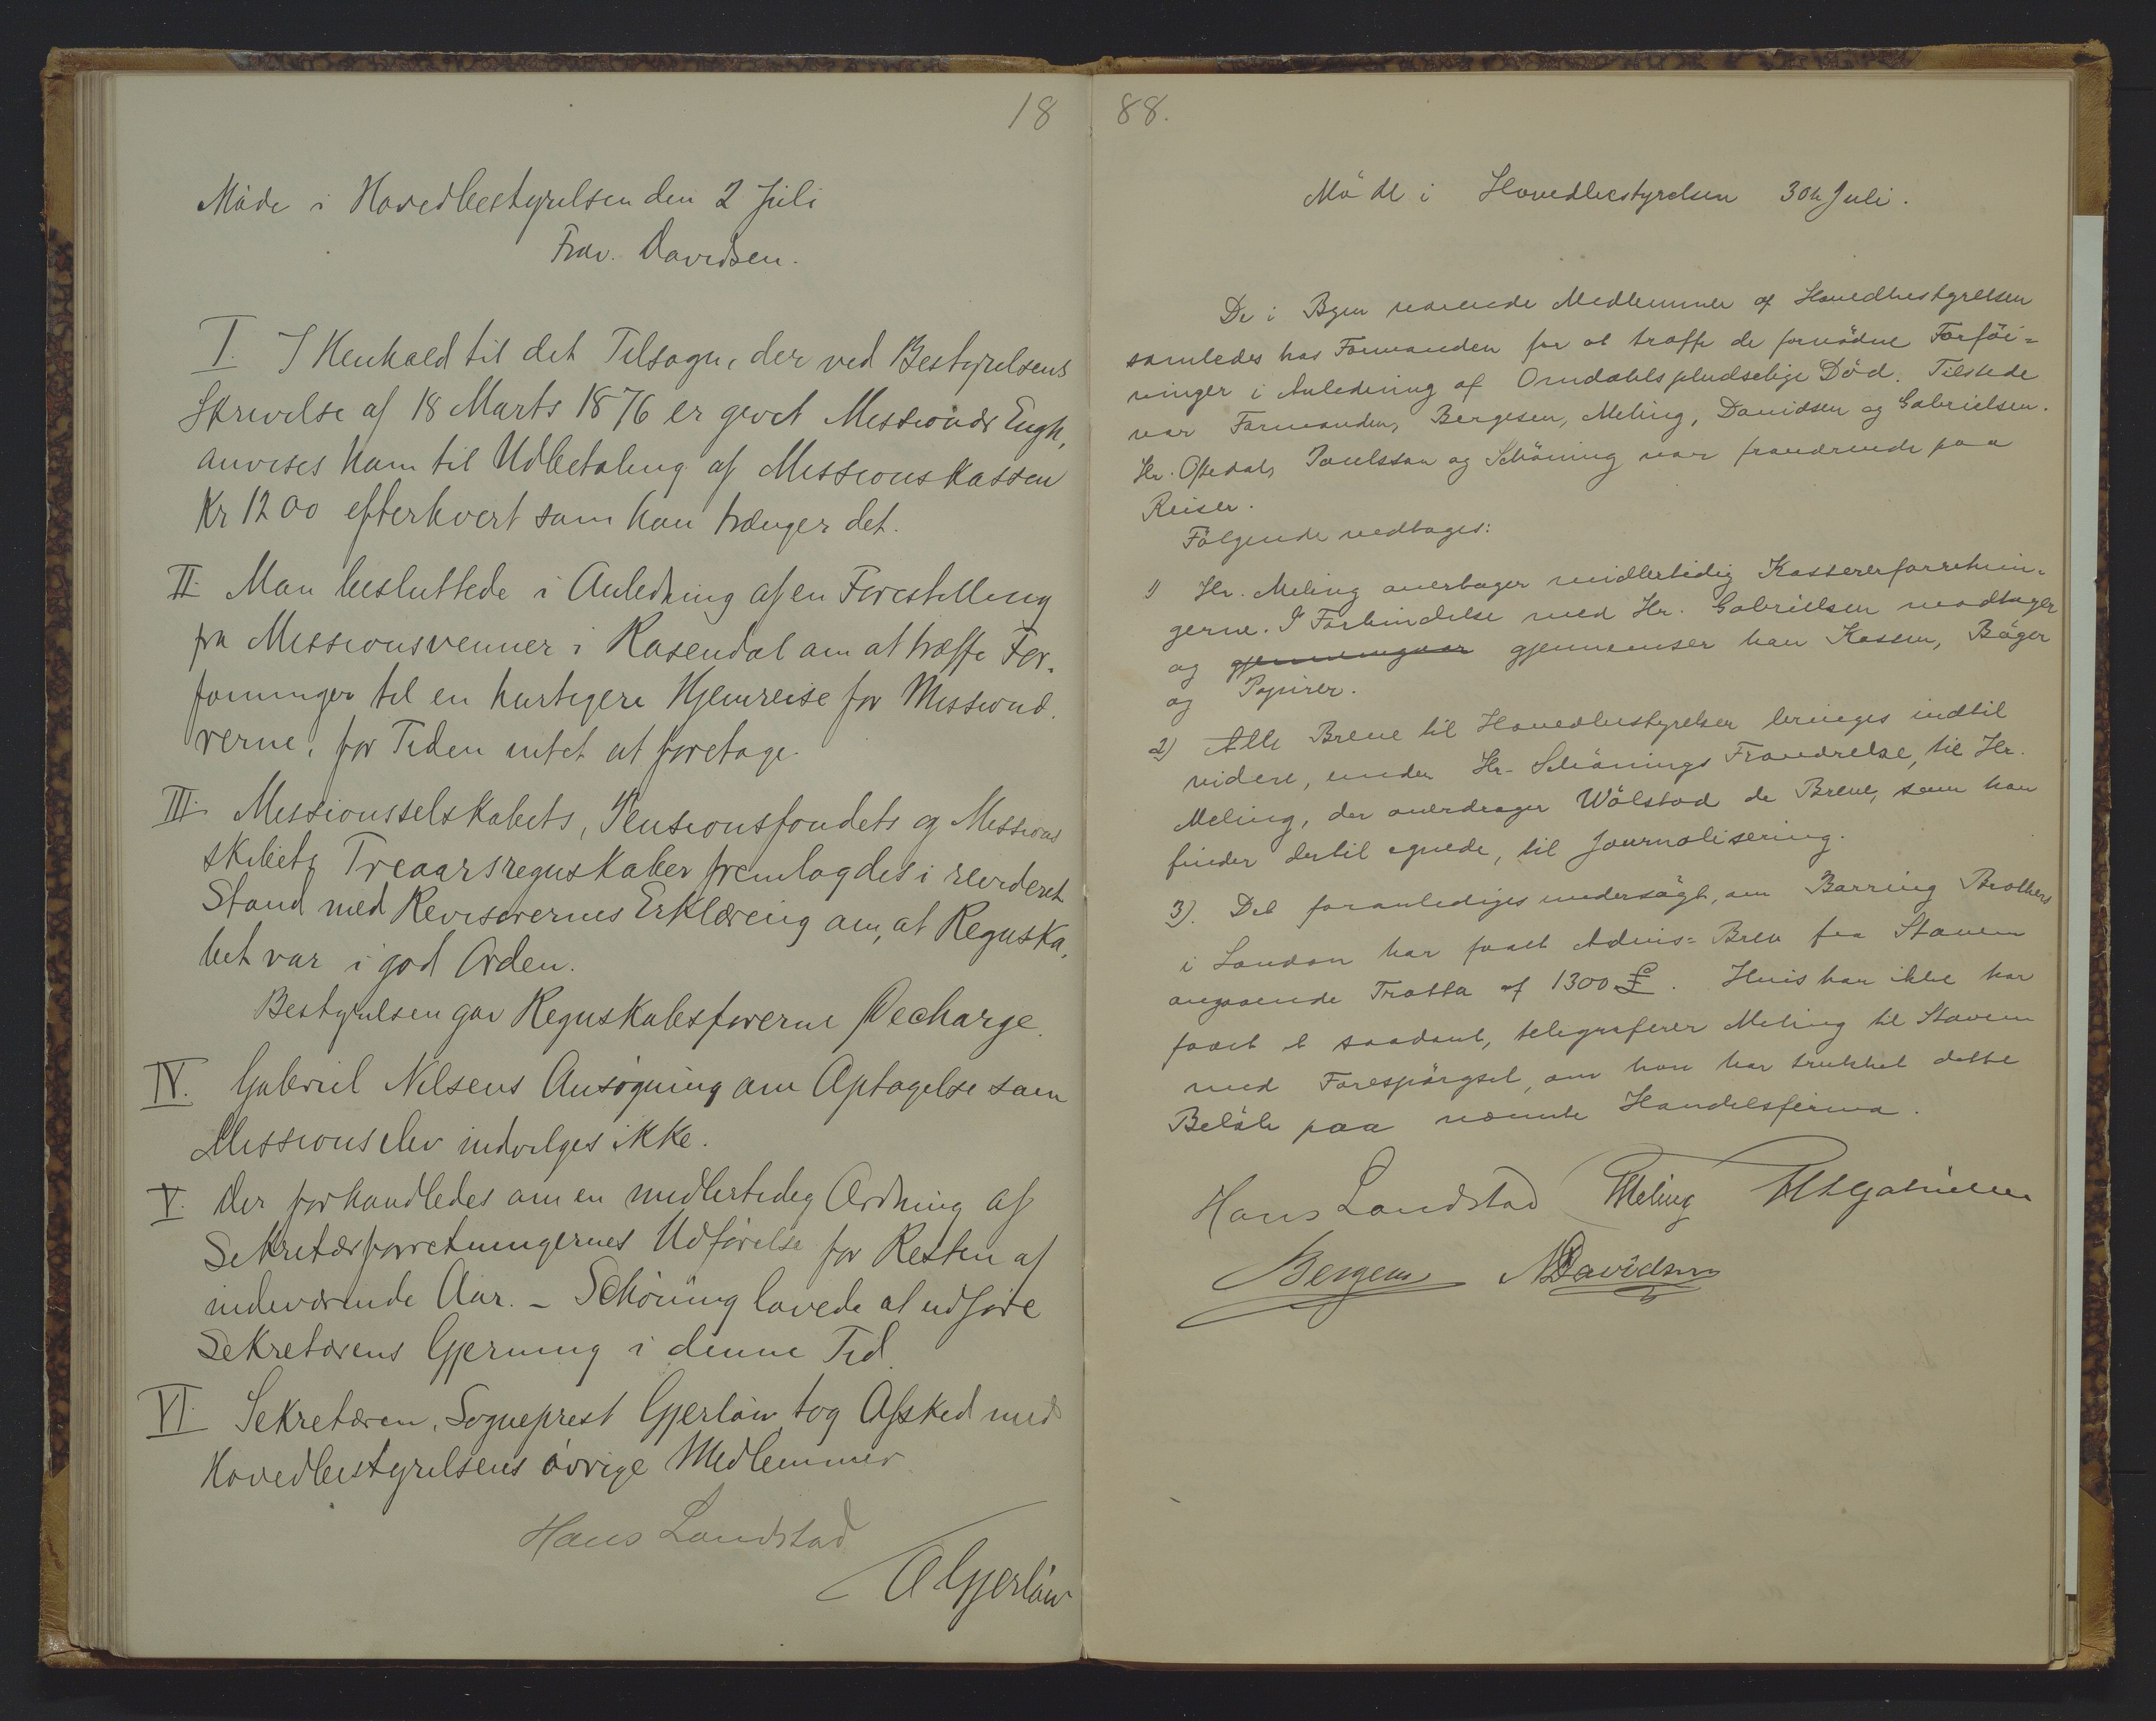 18
Møde i Hovedbestyrelsen den 2 Juli
Frav. Davidsen.
I. I Henhold til det Tilsagn, der ved Bestyrelsens
Skrivelse af 18 Marts 1876 er givet Missionær Engh,
anvises ham til Udbetaling af Missionskassen
Kr 1200 efterhvert som han trænger det.
II. Man besluttede i Anledning af en Forestilling
fra Missionsvenner i Rosendal om at træffe For-
føininger til en hurtigere Hjemreise for Missionæ-
rerne, for Tiden intet at foretage.
III. Missionsselskabets, Pensionsfondets og Missions
skibets Treaarsregnskaber fremlagdes i revideret
Stand med Revisorernes Erklæring om, at Regnska-
bet var i god Orden.
Bestyrelsen gav Regnskabsførerne Decharge.
IV. Gabriel Nilsens Ansøgning om Optagelse som
Missionselev indvilges ikke.
V. Der forhandledes om en midlertidig Ordning af
Sekretærforretningernes Udførelse for Resten af
indeværende Aar. – Schöning lovede at udføre
Sekretærens Gjerning i denne Tid.
VI. Sekretæren, Sogneprest Gjerløw tog Afsked med
Hovedbestyrelsens øvrige Medlemmer
Hans Landstad
O Gjerløw
88.
Möde i Hovedbestyrelsen 30te Juli.
De i Byen værende Medlemmer af Hovedbestyrelsen
samledes hos Formanden for at træffe de fornödne Forföi=
ninger i Anledning af Omdahls pludselige Död. Tilstede
var Formanden, Bergesen, Meling, Davidsen og Gabrielsen.
Hr. Oftedal, Poulsson og Schöning var fraværende paa
Reiser.
Fölgende vedtages:
1) Hr. Meling overtager midlertidig Kassererforretnin-
gerne. I Forbindelse med Hr. Gabrielsen modtager
og gjennemgaar gjennemser han Kassen, Böger
og Papirer.
2) Alle Breve til Hovedbestyrelsen bringes indtil
videre, under Hr. Schönings Fraværelse, til Hr.
Meling, der overdrager Wölstad de Breve, som han
finder dertil egnede, til Journalisering.
3). Det foranlediges undersögt, om Barring Brothers
i London har faaet Advis= Brev fra Stavem
angaaende Tratta af 1300 £. Hvis han ikke har
faaet et saadant, telegraferer Meling til Stavem
med Forespörgsel, om han har trukket dette
Belöb paa nævnte Handelsfirma.
Hans Landstad Meling Gabrielsen
Bergesen N Davidsen